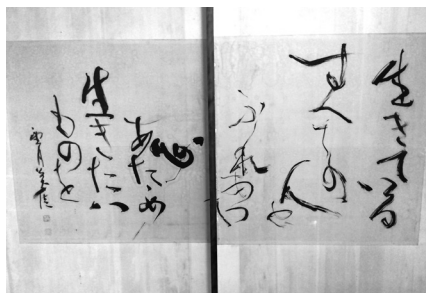 生きている
すべての
人と
ふれ合い
心
あたゝめ
生きたい
ものを